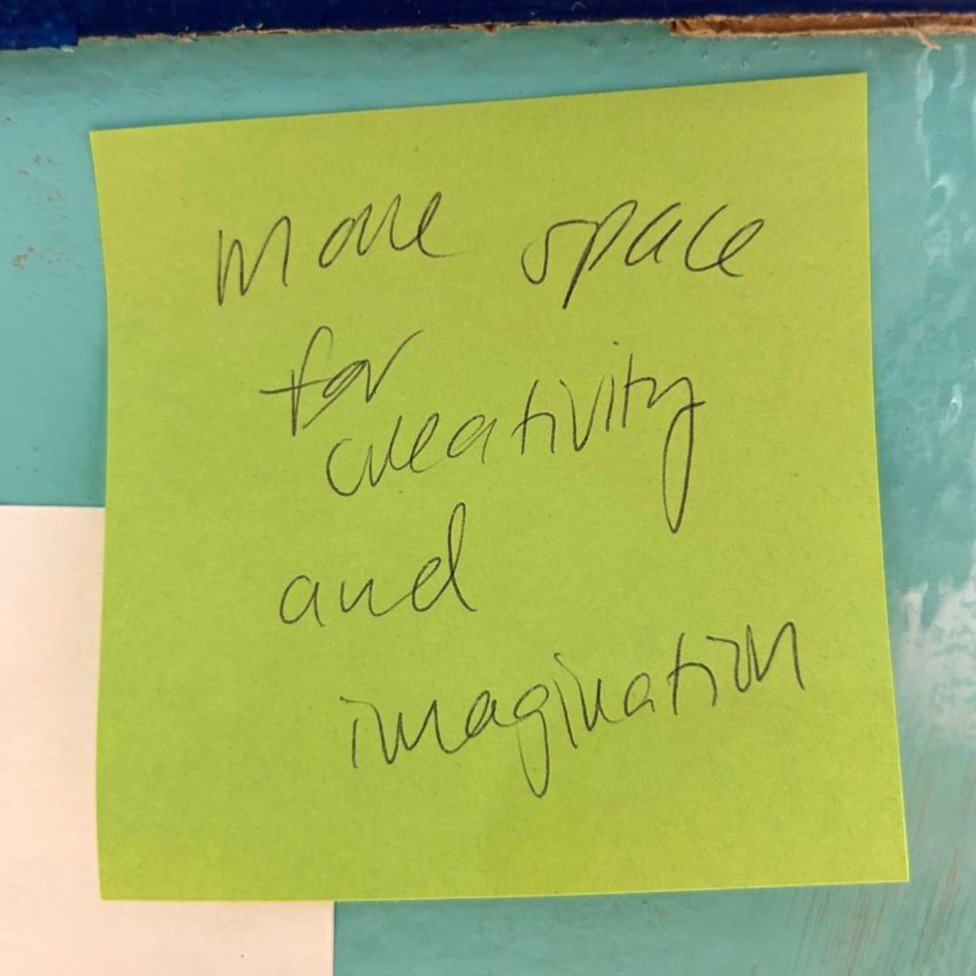 more space
for
creativity
and
imagination